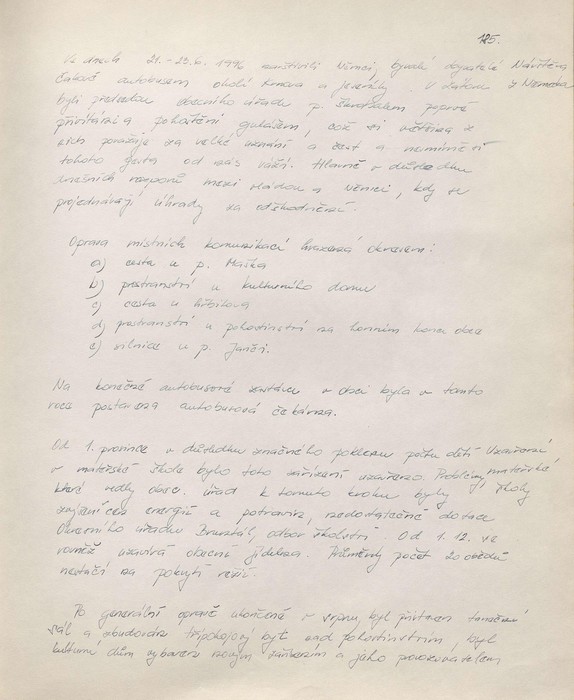 125.
Ve dnech 21. - 23.6. 1996 navštívili Němci, bývalí obyvatelé Návštěva
autobusem okolí Krnova a Jeseníky. V z Německa
byli předsedou obecního úřadu p. poprvé
přivítáni a pohoštěni gulášem, což si většina z
nich považuje za velké uznání a čest a nesmírně si
tohoto gesta od nás váží. Hlavně v důsledku
dnešních rozporů mezi vládou a Němci, kdy se
projednávají úhrady za odškodnění.
Oprava místních komunikací hrazená okresem:
a) cesta u p. Maška
b) prostranství u kulturního domu
c) cesta u hřbitova
d) prostranství u pohostinství na horním konci obce
e) silnice u p. Janči.
Na konečné autobusové zastávce v obci byla v tomto
roce postavena autobusová čekárna.
Od 1. prosince v důsledku značného poklesu počtu dětí Uzavření
v mateřské škole bylo toto zařízení uzavřeno. Problémy, mateřské
které vedly obec. úřad k tomuto kroku byly školy
zvýšení cen energií a potravin, nedostatečné dotace
Okresního úřadu Bruntál, odbor školství. Od 1. 12. se
rovněž uzavírá obecní jídelna. Průměrný počet 20 obědů
nestačí na pokrytí režií.
Po generální opravě ukončené v srpnu, byl přistaven taneční
sál a zbudován třípokojový byt nad pohostinstvím, byl
kulturní dům vybaven novým zařízením a jeho provozovatelem